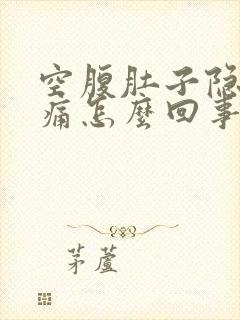 空腹肚子隐
痛怎麽回事
茅蘆